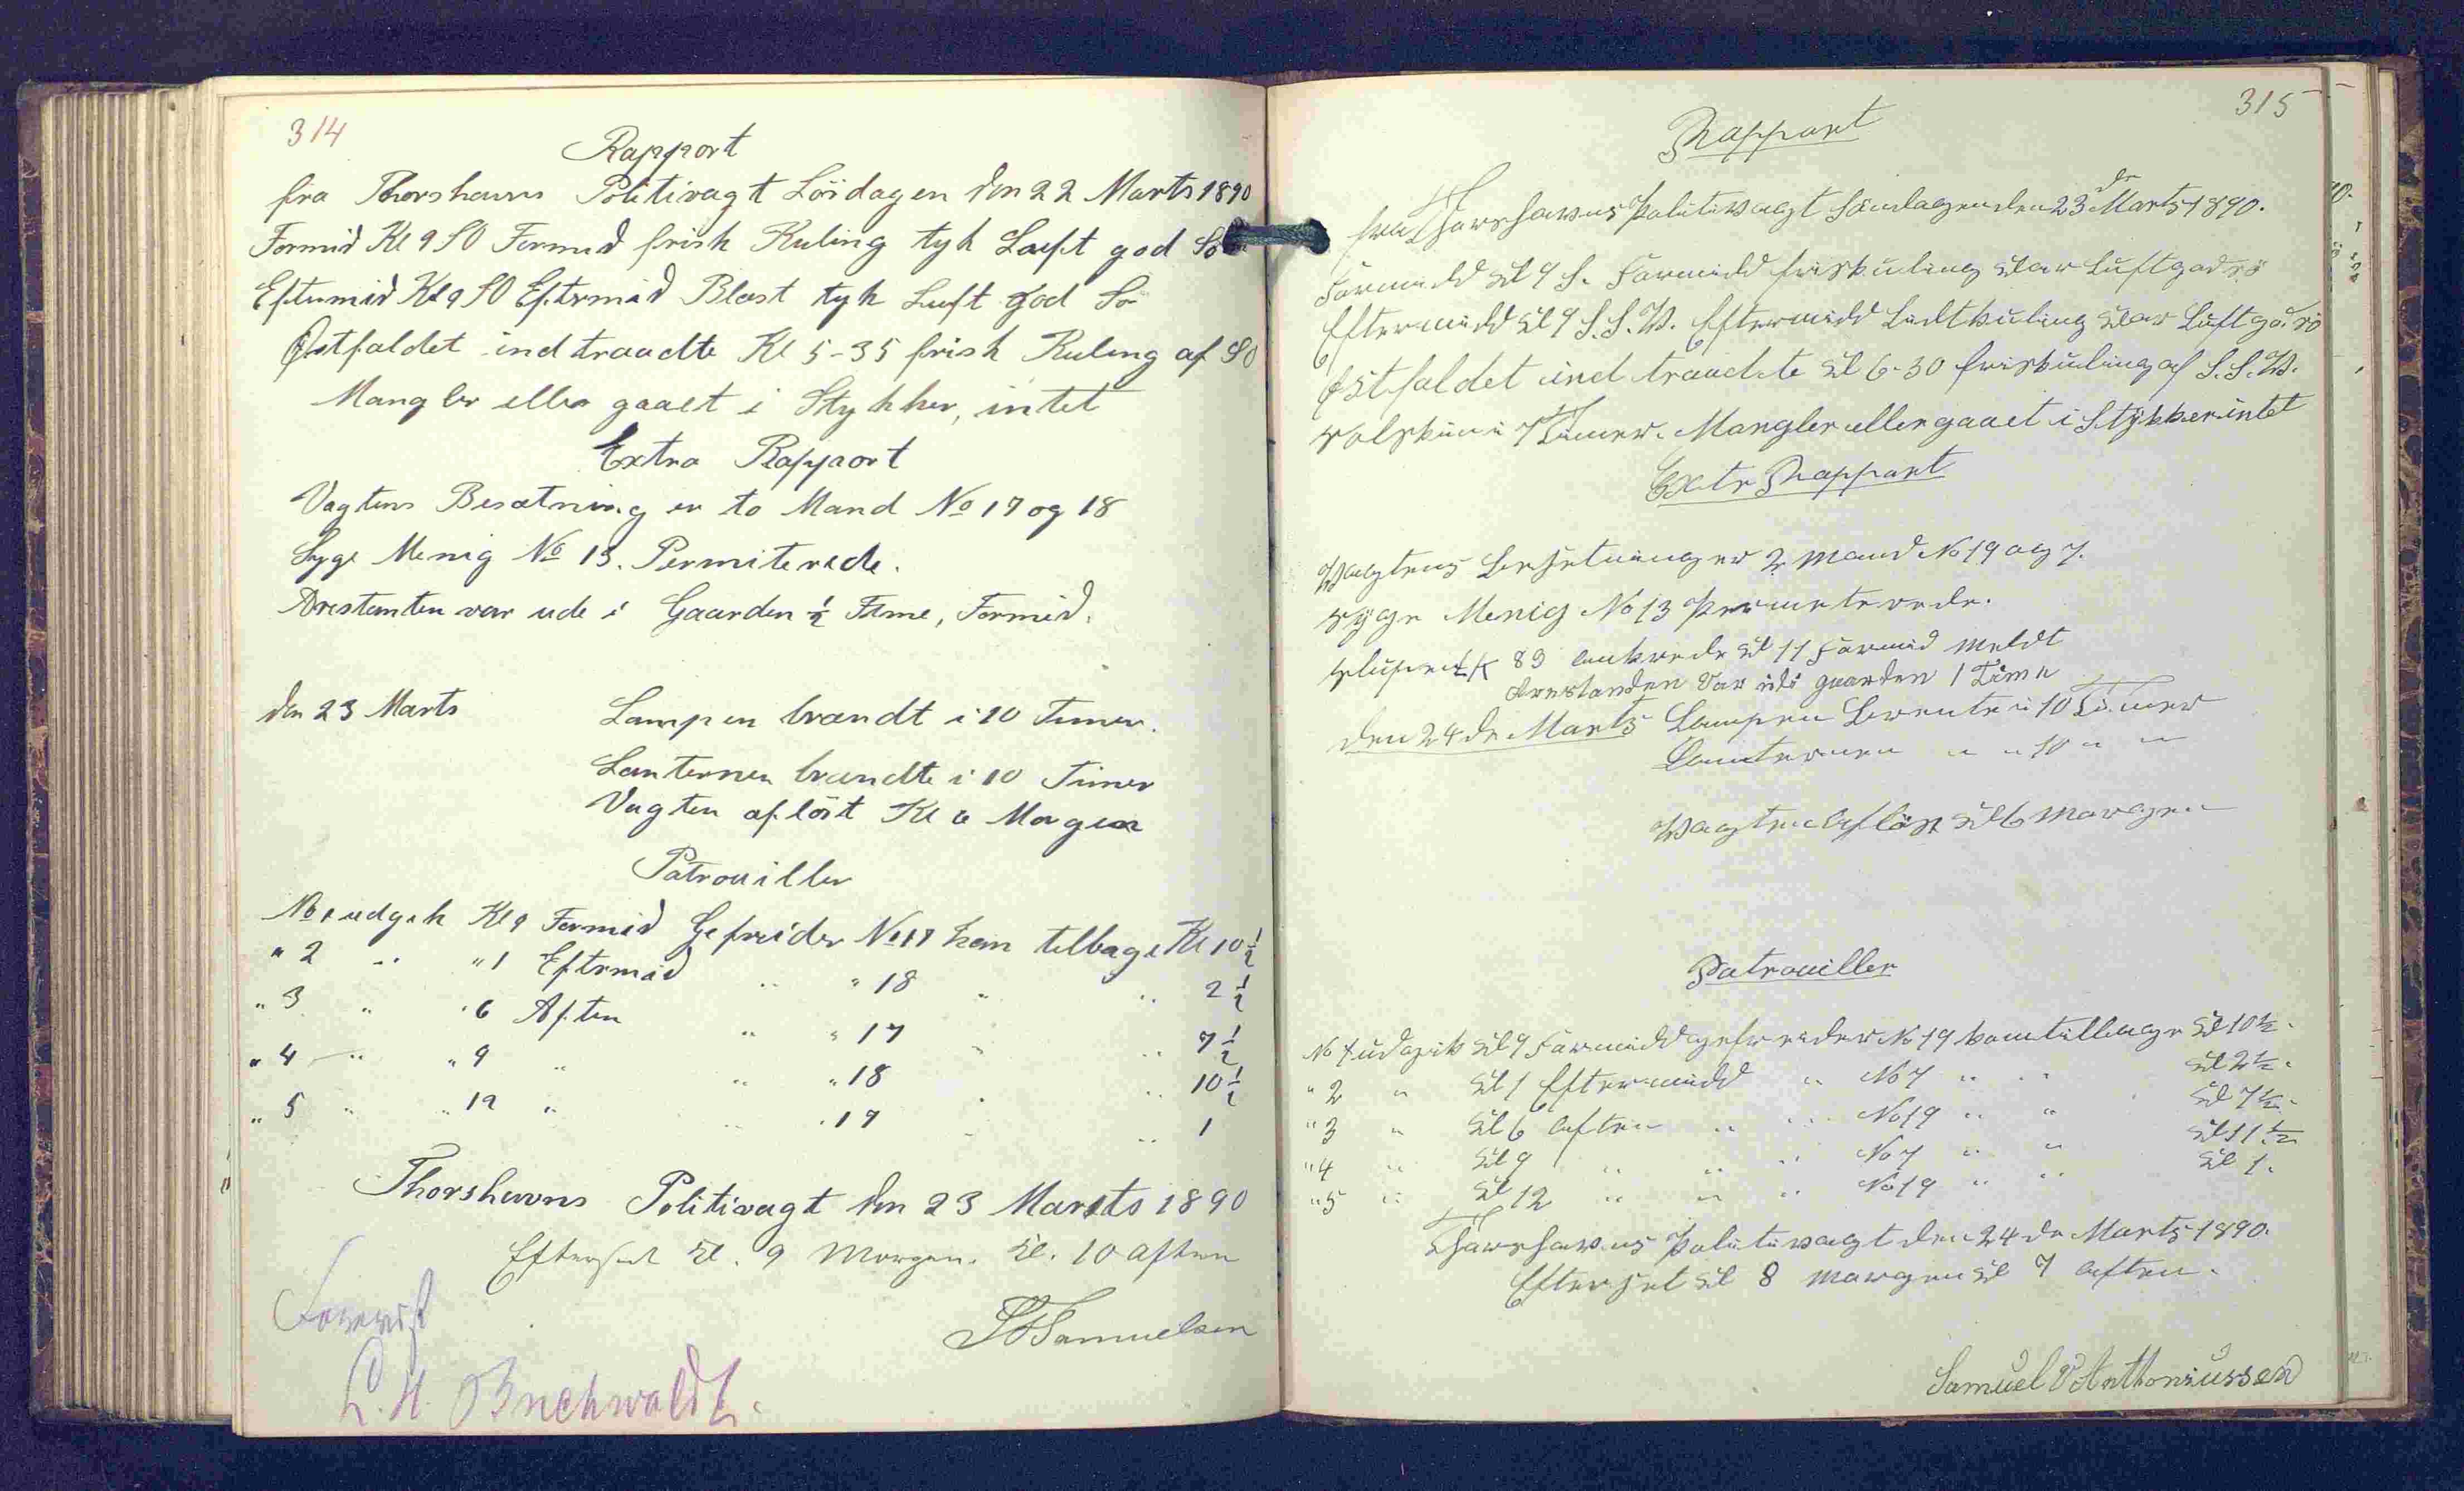 314
Rapport
fra Thorshavns Politivagt Löidagen den 22 Marts 1890
Formid Kl 9 SO Formid frisk Kuling tyk Luft god Sö
Eftermid Kl 9 SO Eftermid Blæst tyk Luft god Sö
Østfaldet indtraadte Kl 5-35 frisk Kuling af SO
Mangler eller gaaet i Stykker, intet
Extra Rapport
Vagtens Besætning er to Mand No 17 og 18
Syge Menig No 13. Permiterede.
Arestanten var ude i Gaarden ½ Time, Formid.
den 23 Marts Lampen brændt i 10 Timer.
Lanternen brændte i 10 Timer
Vagten aflöst Kl 6 Morgen
Patrouiller
No 1 udgik Kl 9 Formid Gefreider No 17 kom tilbage Kl 10 ½
" 2 " " 1 Eftermid " " 18 " " 2 ½
" 3 " " 6 Aften " " 17 " " 7 ½
" 4 " " 9 " " " 18 " " 10 ½
" 5 " " 12 " " " 17 " " 1
Thorshavns Politivagt den 23 Marts 1890
Efterset Kl. 9 Morgen. Kl. 10 Aften
Samuelsen
Forevist
Buchwaldt.
315
Rapport
fra Thorshavns Politivagt Söndagen den 23 de Marts 1890.
Formidd Kl 9 S. Formidd friskuling klar Luft god sö
Eftermidd Kl 9 S.S.W. Eftermidd Lidtkuling klar Luft god sö
Østfaldet indtraadte Kl 6-30 friskuling af S.S.W.
Solskin i 7 Timer. Mangler eller gaaet i Stykker intet
Extr Rapport
Wagtens Besetning er 2 Mand No 19 og 7.
syge Menig No 13 Permeterede.
83 ankrede Kl 11 Formid meldt
Arestanden Var udi gaarden 1 Time
den 24 de Marts Lampen Brente i 10 Timer
Lanternen " " 10 " "
Wagten Aflöst Kl 6 Morgen
Patrouiller
No 1 udgik Kl 9 Formidd gefreider No 19 kom tilbage Kl 10½.
" 2 " Kl 1 Eftermidd " No 7 " " Kl 2½.
" 3 " Kl 6 Aften " " No 19 " " Kl 7½.
" 4 " Kl 9 " " " No 7 " " Kl 11½
" 5 " Kl 12 " " " No 19 " " Kl 1.
Thorshavns Politivagt den 24 de Marts 1890.
Efterset Kl 8 Morgen Kl 7 Aften.
Samuel Anthoniussen